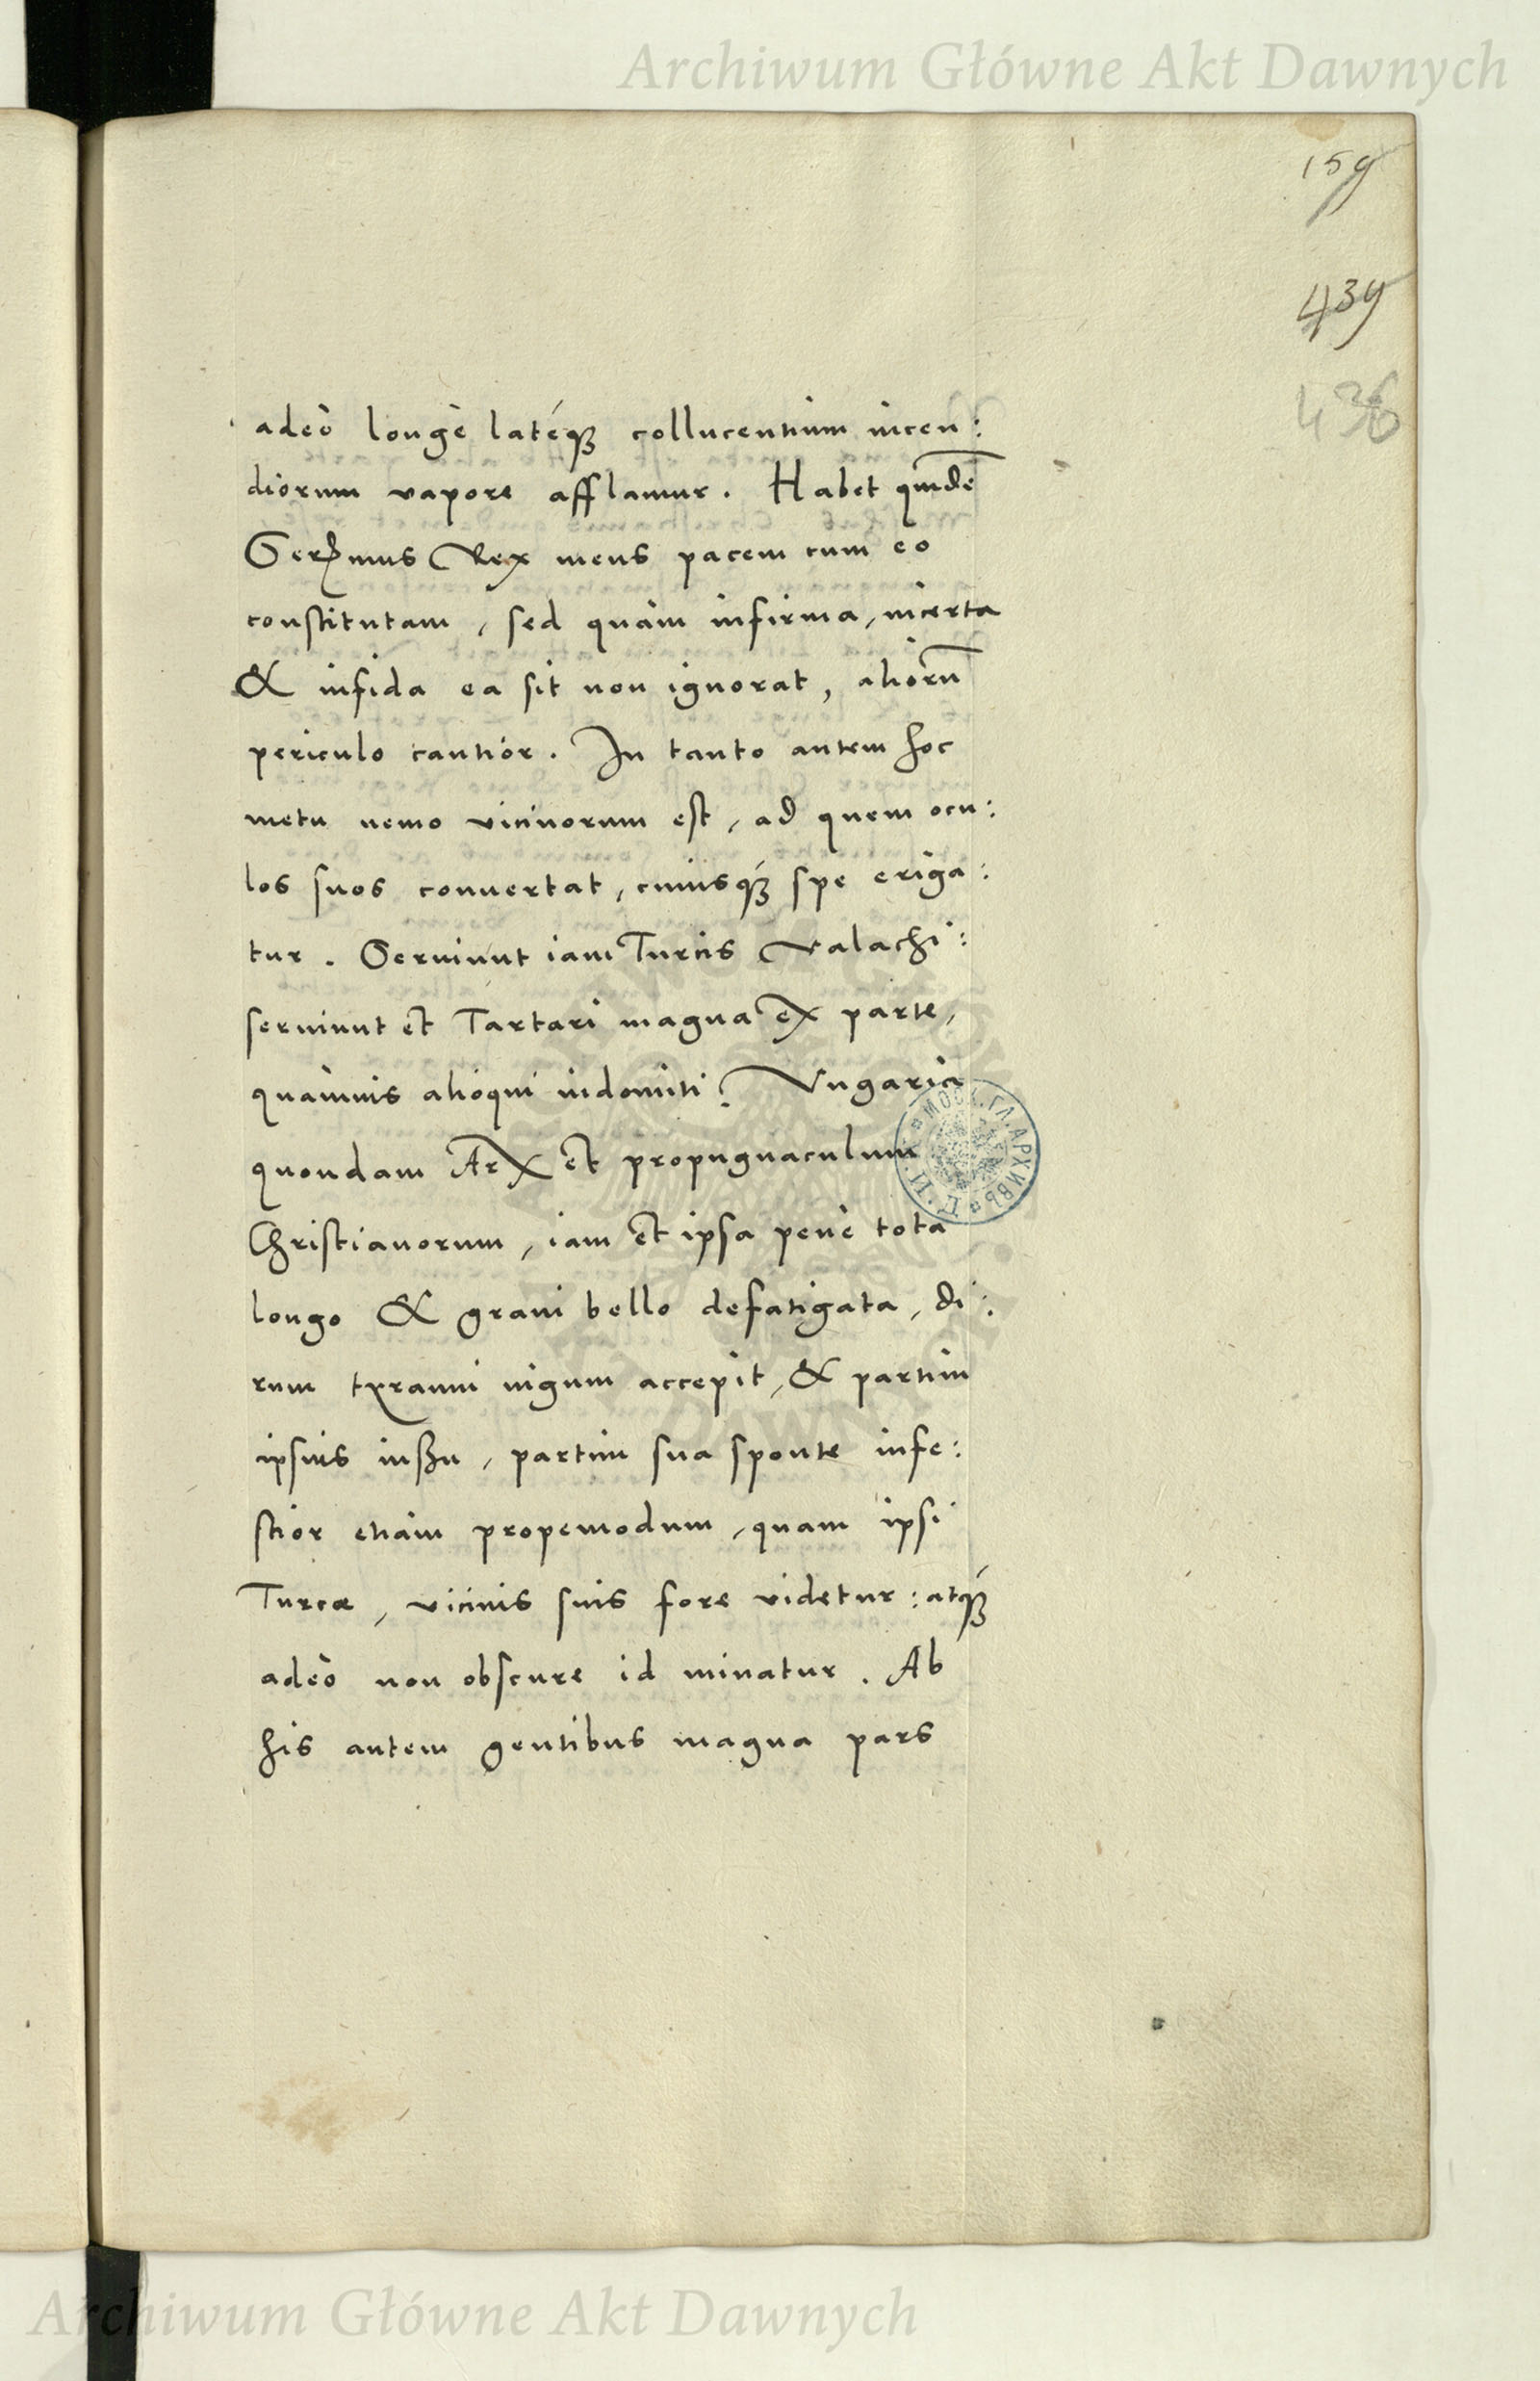 Archiwum Główne Akt Dawnych
159
439
436
adeò longè latéq́ꝫ collucentium incen:
diorum vapore afflamur. Habet quidē
Serᵐus Rex meus pacem cum eo
constitutam, sed quàm infirma, incerta
& infida ea sit non ignorat, aliorū
periculo cautior. In tanto autem hoc
metu nemo vicinorum est, ad quem ocu:
los suos conuertat, cuiusq́ꝫ spe eriga:
tur. Seruiunt iam Turcis Valachi:
seruiunt et Tartari magna ex parte,
quamuis alioqui indomiti. Vngaria
quondam Arx et propugnaculum
Christianorum, iam et ipsa penè tota
longo & graui bello defatigata, di:
rum tyranni iugum accepit, & partim
ipsius iussu, partim sua sponte infe:
stior etiam propemodum, quam ipsi
Turcæ, vicinis suis fore videtur: atq́ꝫ
adeò non obscure id minatur. Ab
his autem gentibus magna pars
МОСК. ГЛ. АРХИВЪ
Archiwum Główne Akt Dawnych